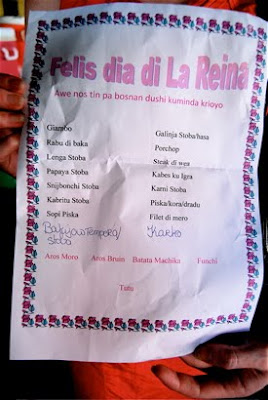 Felis dia di La Reina
Awe nos tin pa bosnan dushi kuminda krioyo
Giambo
Rabu di baka
Lenga Stoba
Papaya Stoba
Snijbonchi Stoba
Kabritu Stoba
Sopi Piska
Stoba
Galinja Stoba/hasa
Porchop
Steak di wea
Kabes ku Igra
Karni Stoba
Piska/kora/dradu
Filet di mero
Karko
Aros Moro Aros Bruin Batata Machika Funchi
Tutu